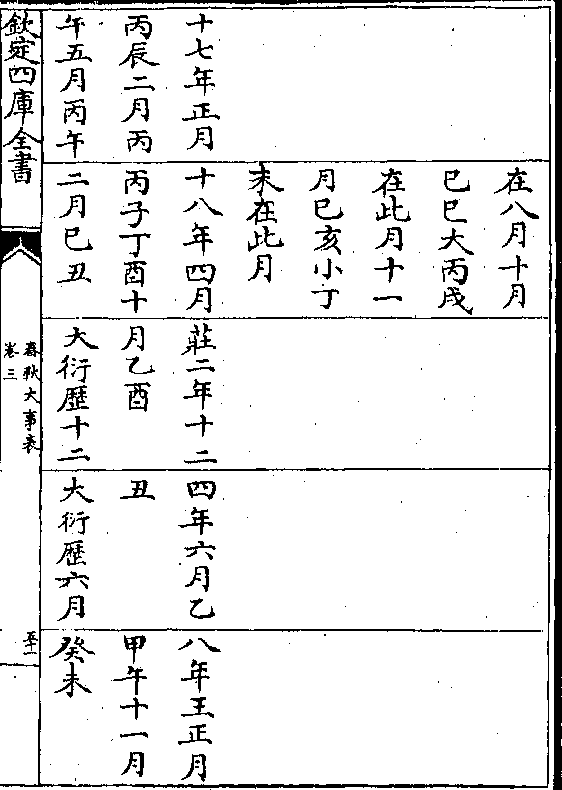 十七年正月
丙辰二月丙
午五月丙午
在八月十月
巳巳大丙戌
在此月十一
月巳亥小丁
未在此月
十八年四月
丙子丁酉十
二月巳丑
莊二年十二
月乙酉
大衍歴十二
四年六月乙
丑
大衍歴六月
八年王正月
甲午十一月
癸未
欽定四庫全書
春秋大事表
卷三
五十一